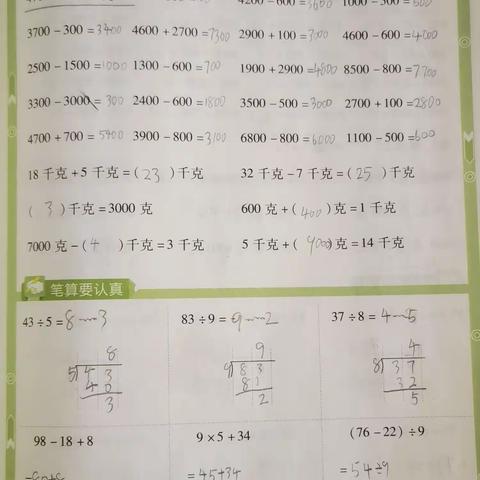 4200 − 600 = 3600 1000 − 500 = 500
3700 − 300 = 3400 4600 + 2700 = 7300 2900 + 100 = 3000 4600 − 600 = 4000
2500 − 1500 = 1000 1300 − 600 = 700 1900 + 2900 = 4800 8500 − 800 = 7700
3300 − 3000 = 300 2400 − 600 = 1800 3500 − 500 = 3000 2700 + 100 = 2800
4700 + 700 = 5400 3900 − 800 = 3100 6800 − 800 = 6000 1100 − 500 = 600
18 千克 + 5 千克 = ( 23 ) 千克 32 千克 − 7 千克 = ( 25 ) 千克
( 3 ) 千克 = 3000 克 600 克 + ( 400 ) 克 = 1 千克
7000 克 − ( 4 ) 千克 = 3 千克 5 千克 + ( 9000 ) 克 = 14 千克
笔算要认真
43 ÷ 5 = 8……3 83 ÷ 9 = 9……2 37 ÷ 8 = 4……5
8 9 4
5 43 9 83 8 37
40 81 32
3 2 5
98 − 18 + 8 9 × 5 + 34 (76 − 22) ÷ 9
= 80 + 8 = 45 + 34 = 54 ÷ 9